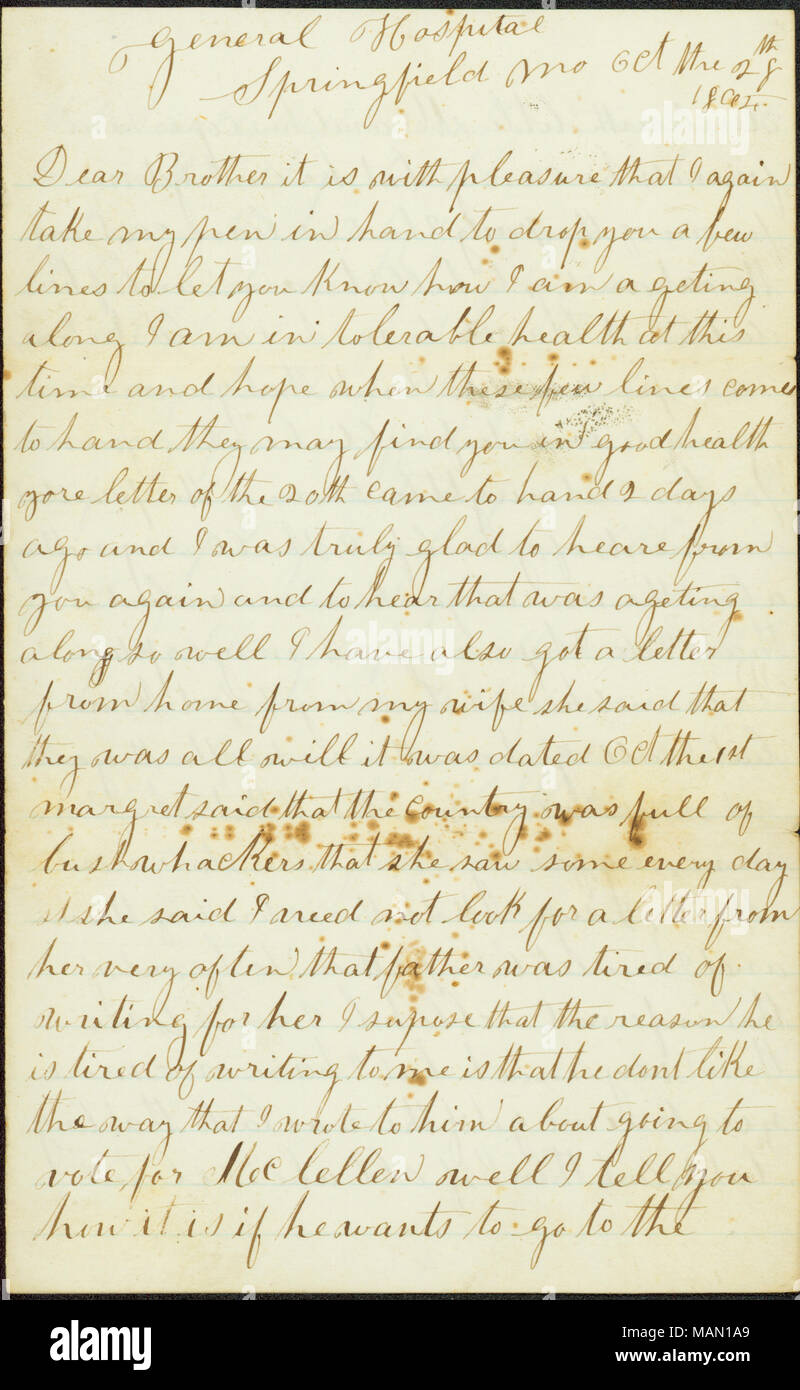 General Hospital
Springfield Mo Oct the 28th
1864
Dear Brother it is with pleasure that I again
take my pen in hand to drop you a few
lines to let you know how I am a geting
along I am in tolerable health at this
time and hope when these few lines comes
to hand they may find you in good health
yore letter of the 20th came to hand 2 days
ago and I was truly glad to heare from
you again and to hear that was ageting
along so well I have also got a letter
from home from my wife she said that
they was all will it was dated Oct the 1st
margret said that the country was full of
bushwhackers that she saw some every day
she said I need not look for a letter from
her very often that father was tired of
writing for her I supose that the reason he
is tired of writing to me is that he dont like
the way that I wrote to him about going to
vote for McClellen well I tell you
how it is if he wants to go to the
alamy
alamy
alamy
alamy
alamy
alamy
Image ID: MAN1A9
www.alamy.com